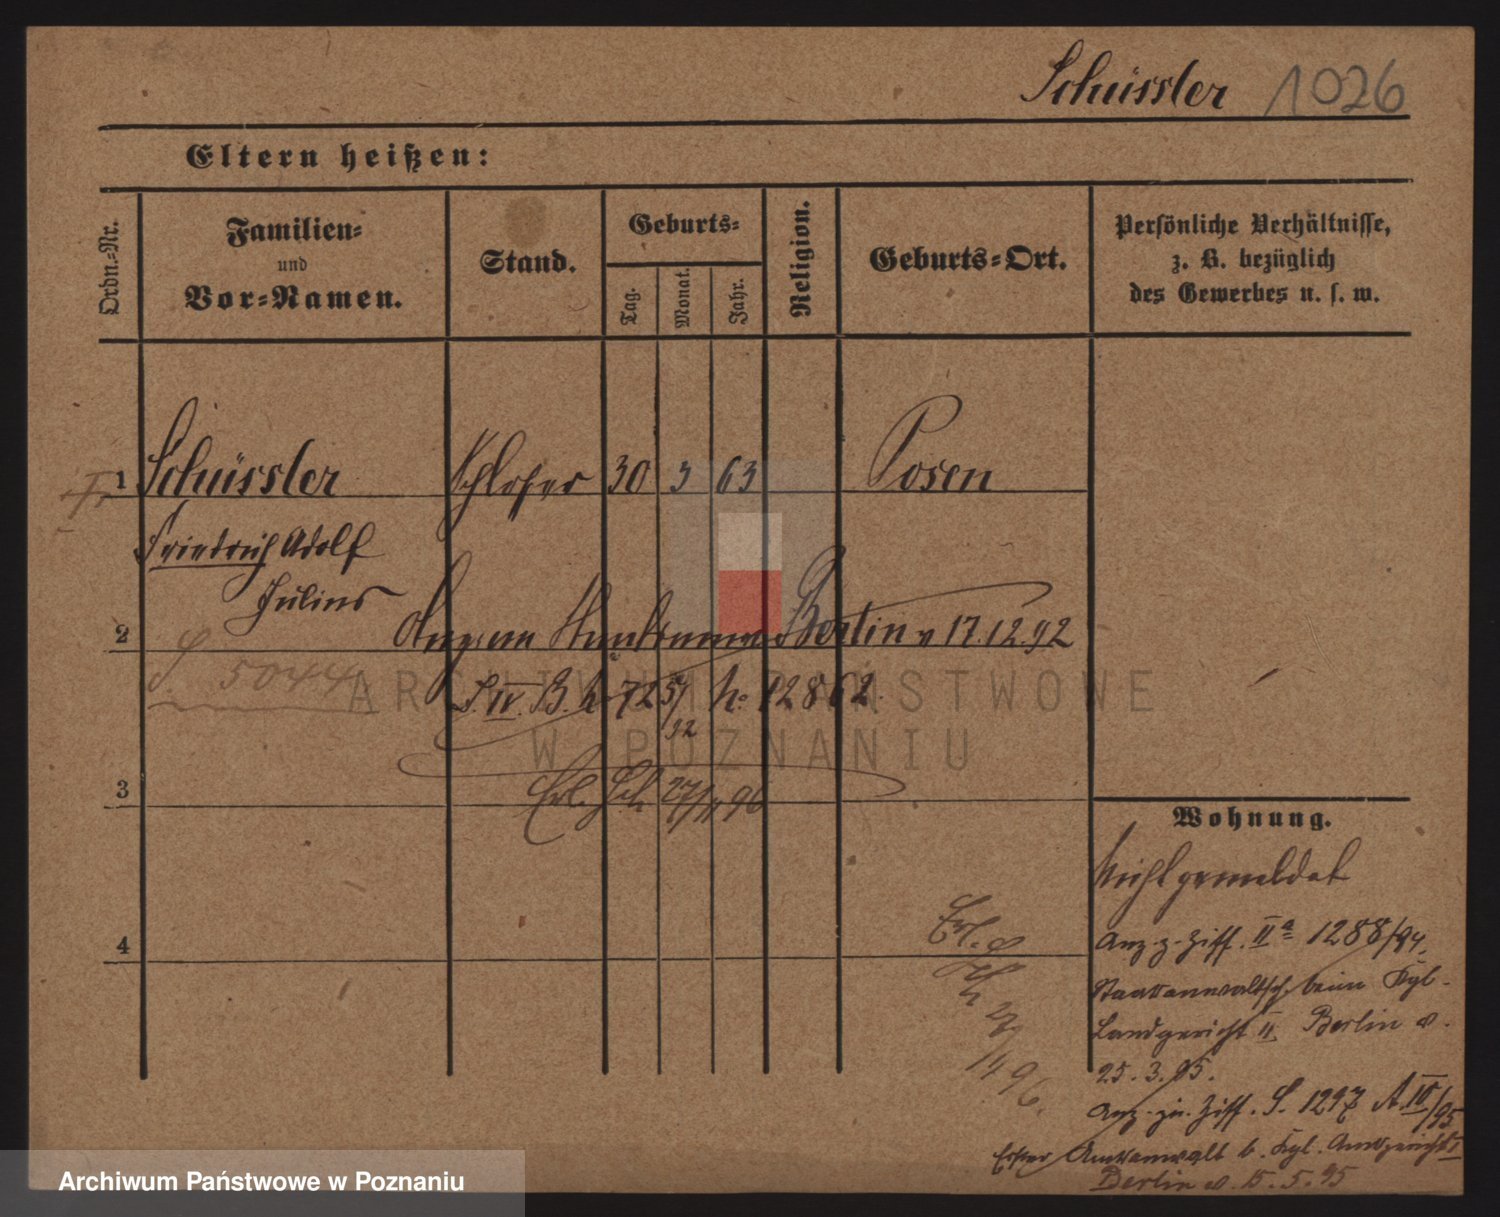 Schüssler 1026
Eltern heißen:
Ordn.-Nr.
Familien-
und
Vor-Namen.
Stand.
Geburts-
Tag.
Monat.
Jahr.
Religion.
Geburts-Ort.
Persönliche Verhältnisse,
z. B. bezüglich
des Gewerbes u. s. w.
1 Schüssler Schlosser 30 3 63 Posen
Friedrich Adolf
Julius
2 Berlin v 17.12.92
S 5044
S. IV. B. 72 57/92 No 12862
ARCHIWUM PAŃSTWOWE
W POZNANIU
3 Erl. Sch 27/11 96
Wohnung.
Nicht gemeldet
4 Erl.
27
11 96.
Anz. z. Ziff. IIa 1288/94.
Staatsanwaltsch. beim Kgl.
Landgericht II Berlin v.
25.3.95.
Anz. zu Ziff. S. 1297 A. IV/95
Erster Amtsanwalt b. Kgl. Amtsgericht I
Berlin v. 15.5.95
Archiwum Państwowe w Poznaniu